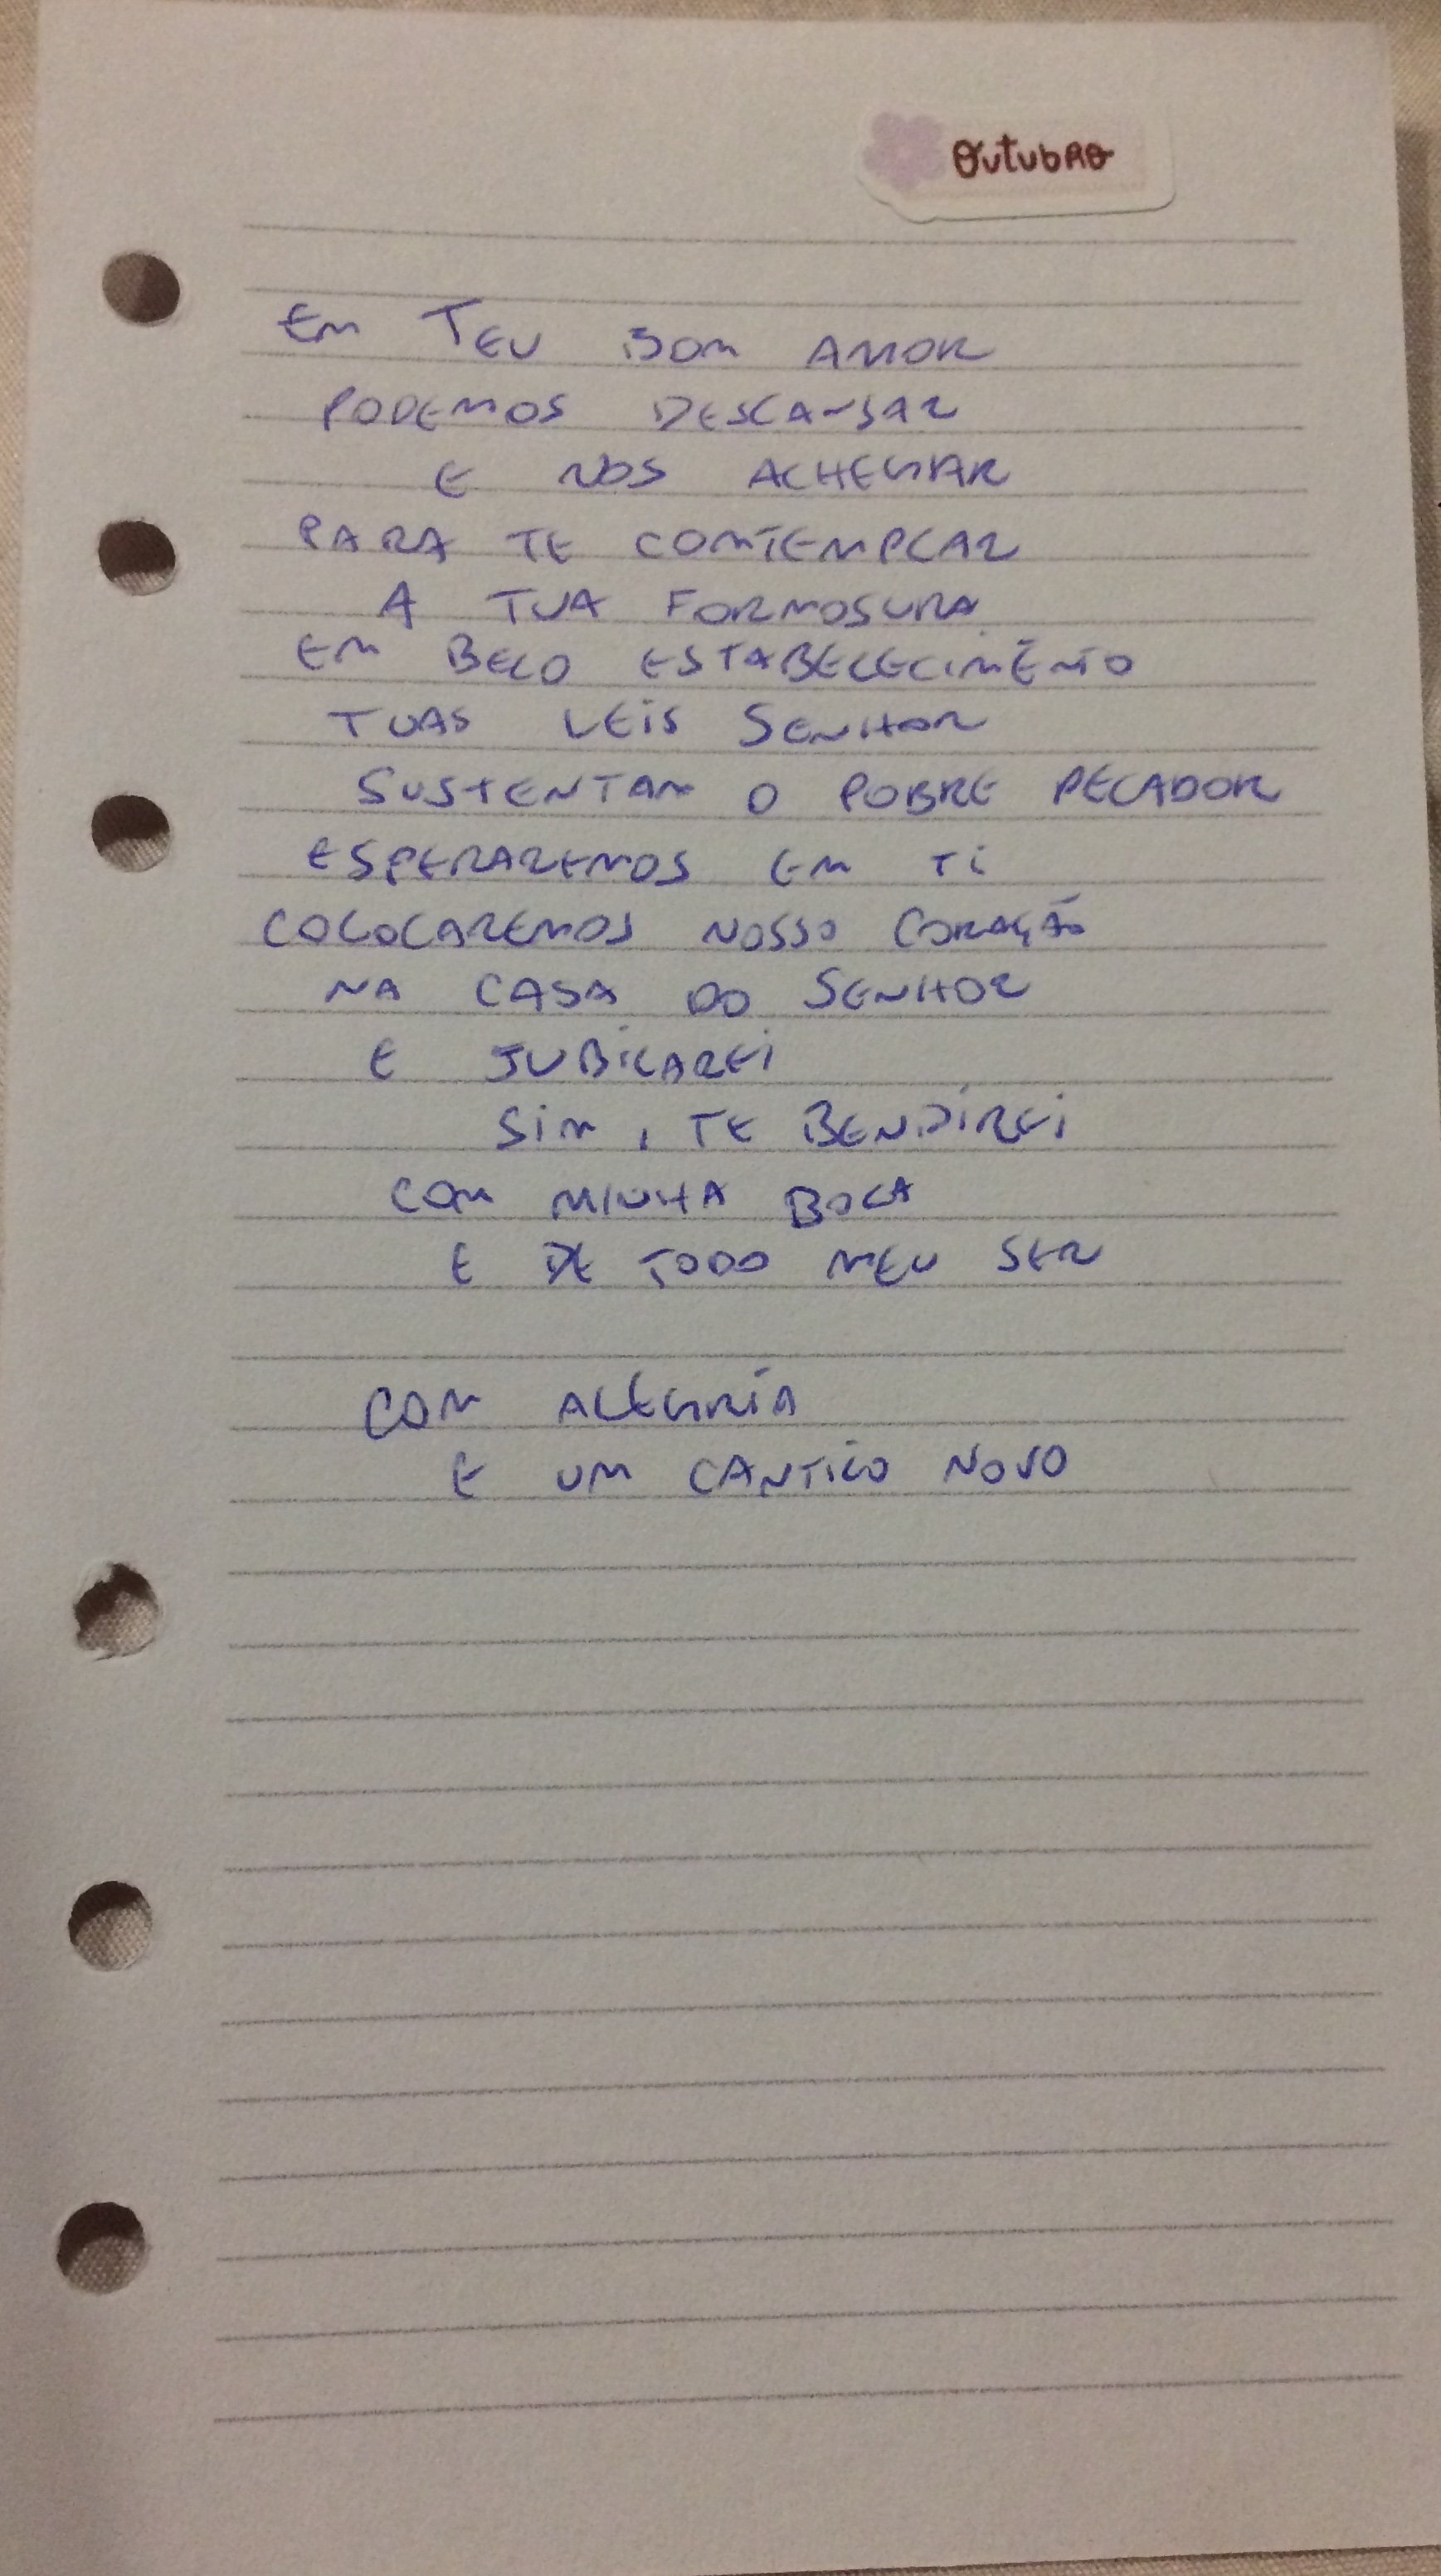 Outubro
EM TEU BOM AMOR
PODEMOS DESCANSAR
E NOS ACHEGAR
PARA TE COMTEMPLAR
A TUA FORMOSURA
EM BELO ESTABELECIMENTO
TUAS LEIS SENHOR
SUSTENTAM O POBRE PECADOR
ESPERAREMOS EM TI
COLOCAREMOS NOSSO CORAÇÃO
NA CASA DO SENHOR
E JUBILAREI
SIM, TE BENDIREI
COM MINHA BOCA
E DE TODO MEU SER
COM ALEGRIA
E UM CANTICO NOVO